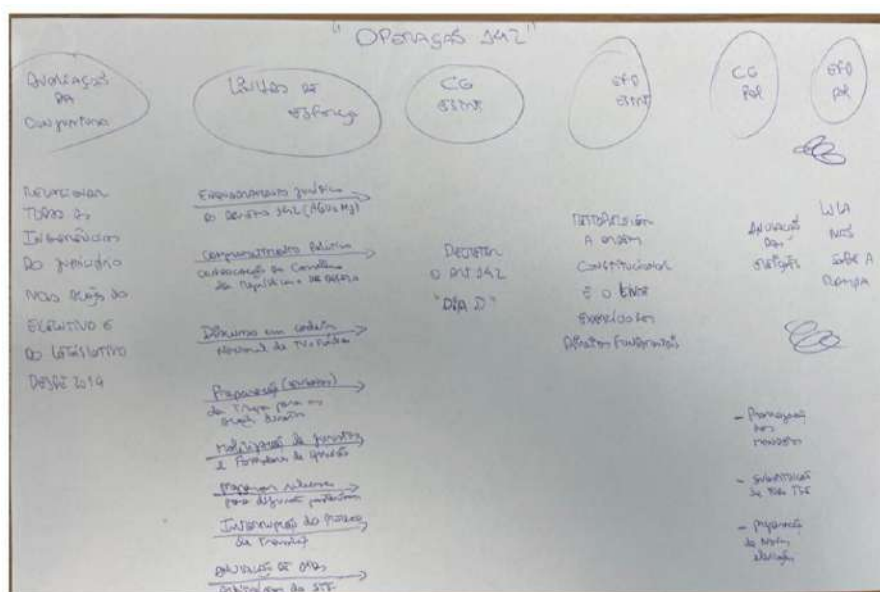 "OPERAÇÃO 142"
AVALIAÇÃO
DA
Conjuntura
LINHAS DE
esforço
CG
ESTRT
EFD
ESTRT
CG
POL
EFD
POL
RELACIONAR
TODAS AS
INTERFERÊNCIAS
DO JUDICIÁRIO
NAS AÇÕES DO
EXECUTIVO E
DO LEGISLATIVO
DESDE 2019
Enquadramento jurídico
do decreto 142 (AGU e MJ)
Comprometimento Político
Convocação do Conselho
da República e da Defesa
Discurso em cadeia
Nacional de TV e Rádio
Preparação
da Tropa para as
ações diretas
Mobilização de juristas
e Formadores de opinião
Interrupção do Processo
de Transição
ANULAÇÃO DE atos
arbitrários do STF
DECRETAR
O ART 142
"DIA D"
A ORDEM
CONSTITUCIONAL
E O LIVRE
EXERCÍCIO DOS
Direitos Fundamentais
ANULAÇÃO
DAS
ELEIÇÕES
LULA
NÃO
SOBE A
RAMPA
- Prorrogação
dos
mandatos
- SUBSTITUIÇÃO
de todo TSE
- preparação
de Novas
eleições